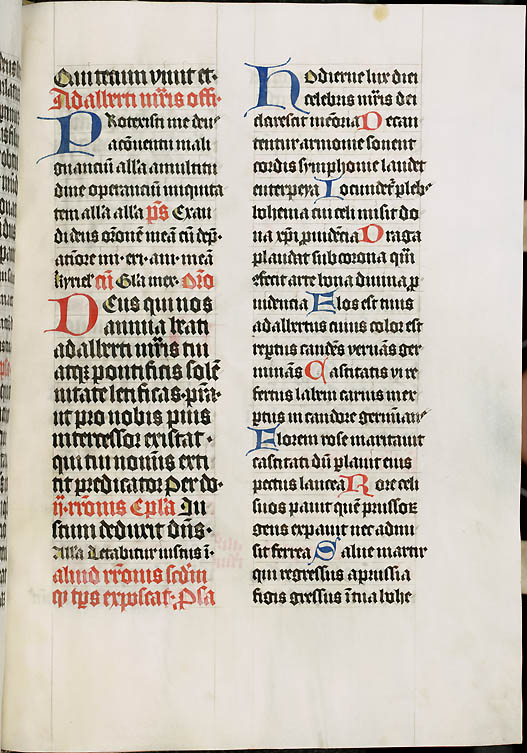 Qui tecum vivit et·
Adalberti mr̄is offi·
Protexisti me deus
a cōuentu mali
gnanciū all'a a multitu
dine operanciū iniquita
tem all'a all'a ps̄ Exau
di deus or̄onē meā cū dep̄·
Kyriel' cū Gl'a mer· Or̄o
Deus qui nos
annua beati
adalberti mr̄is tui
atqꝫ pontificis solē
nitate letificas· p̄ta·
ut pro nobis pius
intercessor existat·
qui tui nominis exti
tit predicator Per do·
r̄ronis Ep̄la Iu
stum deduxit dn̄s·
All'a Letabitur iustus ī·
aliud r̄ronis scd'm
ꝙ tp̄s exposcat· Psa
Hodierne lux diei
celebris mr̄is dei
clarescit memoria Decan
tentur armonie sonent
cordis symphonie laudet
Iocundet' pleb·
bohemia cui celi misit do
na xp̄i prudēcia Praga
plaudat sub corona quā
efecit arte bona diuina p
uidencia Flos est tuus
adalbertus cuius color est
repertus candēs ver
Castitatis vire
fertus labem carnis
ptus in candore
Florem rose maritauit
castitati dū plauit eius
pectus lancea Rore celi
suos pauit quē prussor
gens expauit nec admi
sit ferrea Salue martir
qui regressus a prussia
figis gressus ī tua bohe